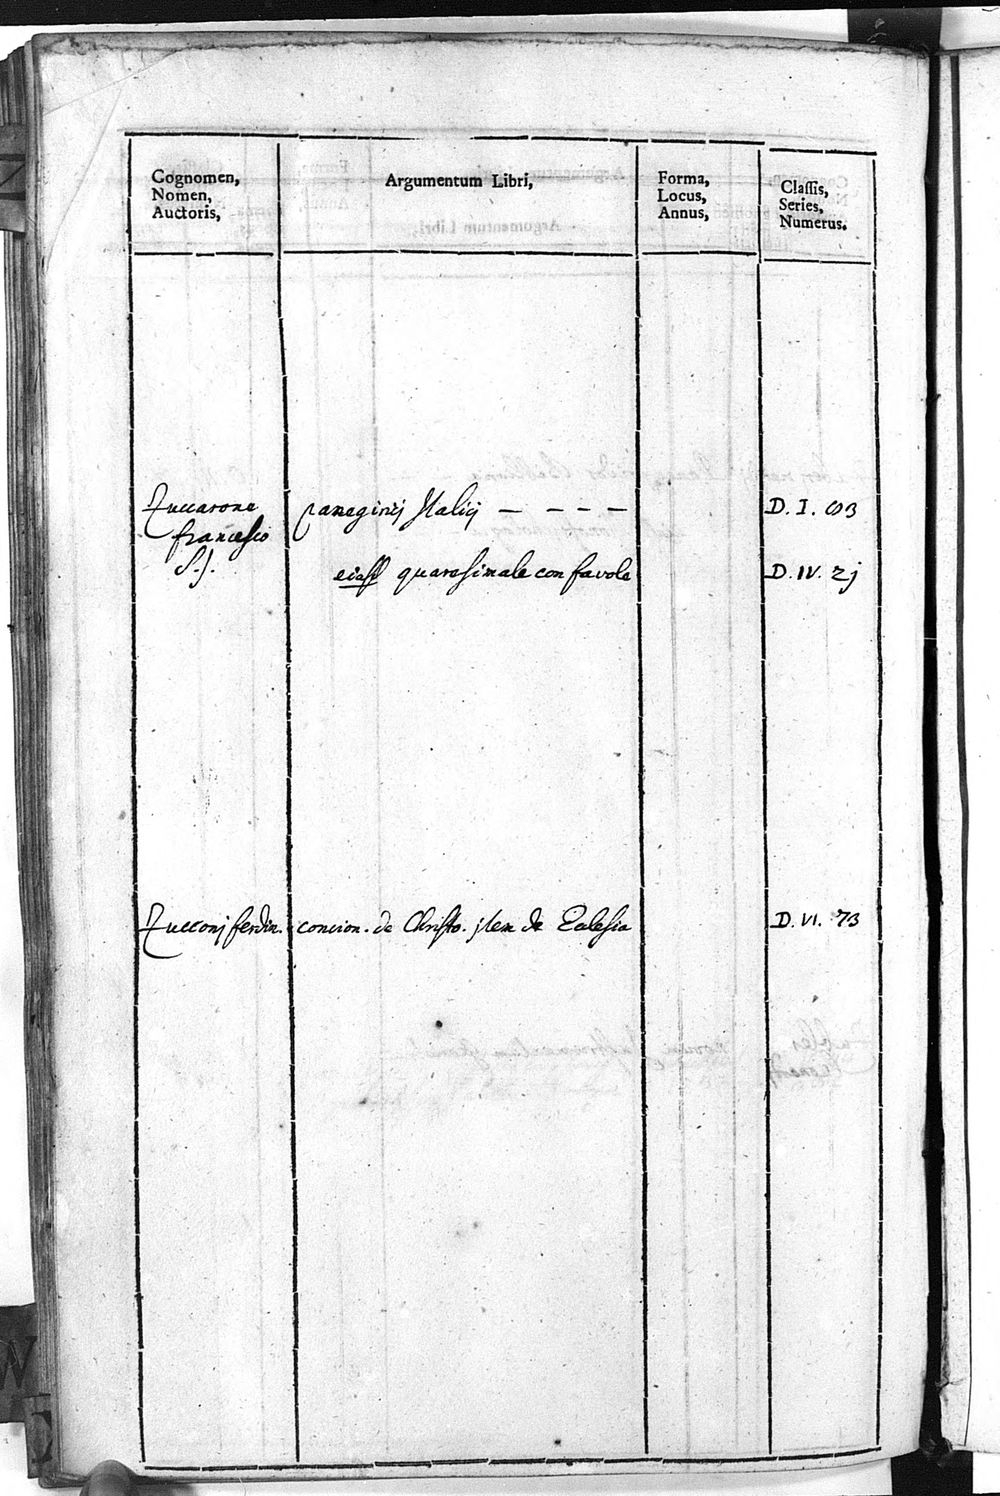 Cognomen,
Nomen,
Auctoris,
Argumentum Libri,
Forma,
Locus,
Annus,
Classis,
Series,
Numerus.
Zuccarone paneginij Italij — — — — D. I.
francesco
S. J. quaresimale con favole D. IV. 2j
Zucconj ferdin. concion. de Christo. jtem de Eclesia D. VI. 73